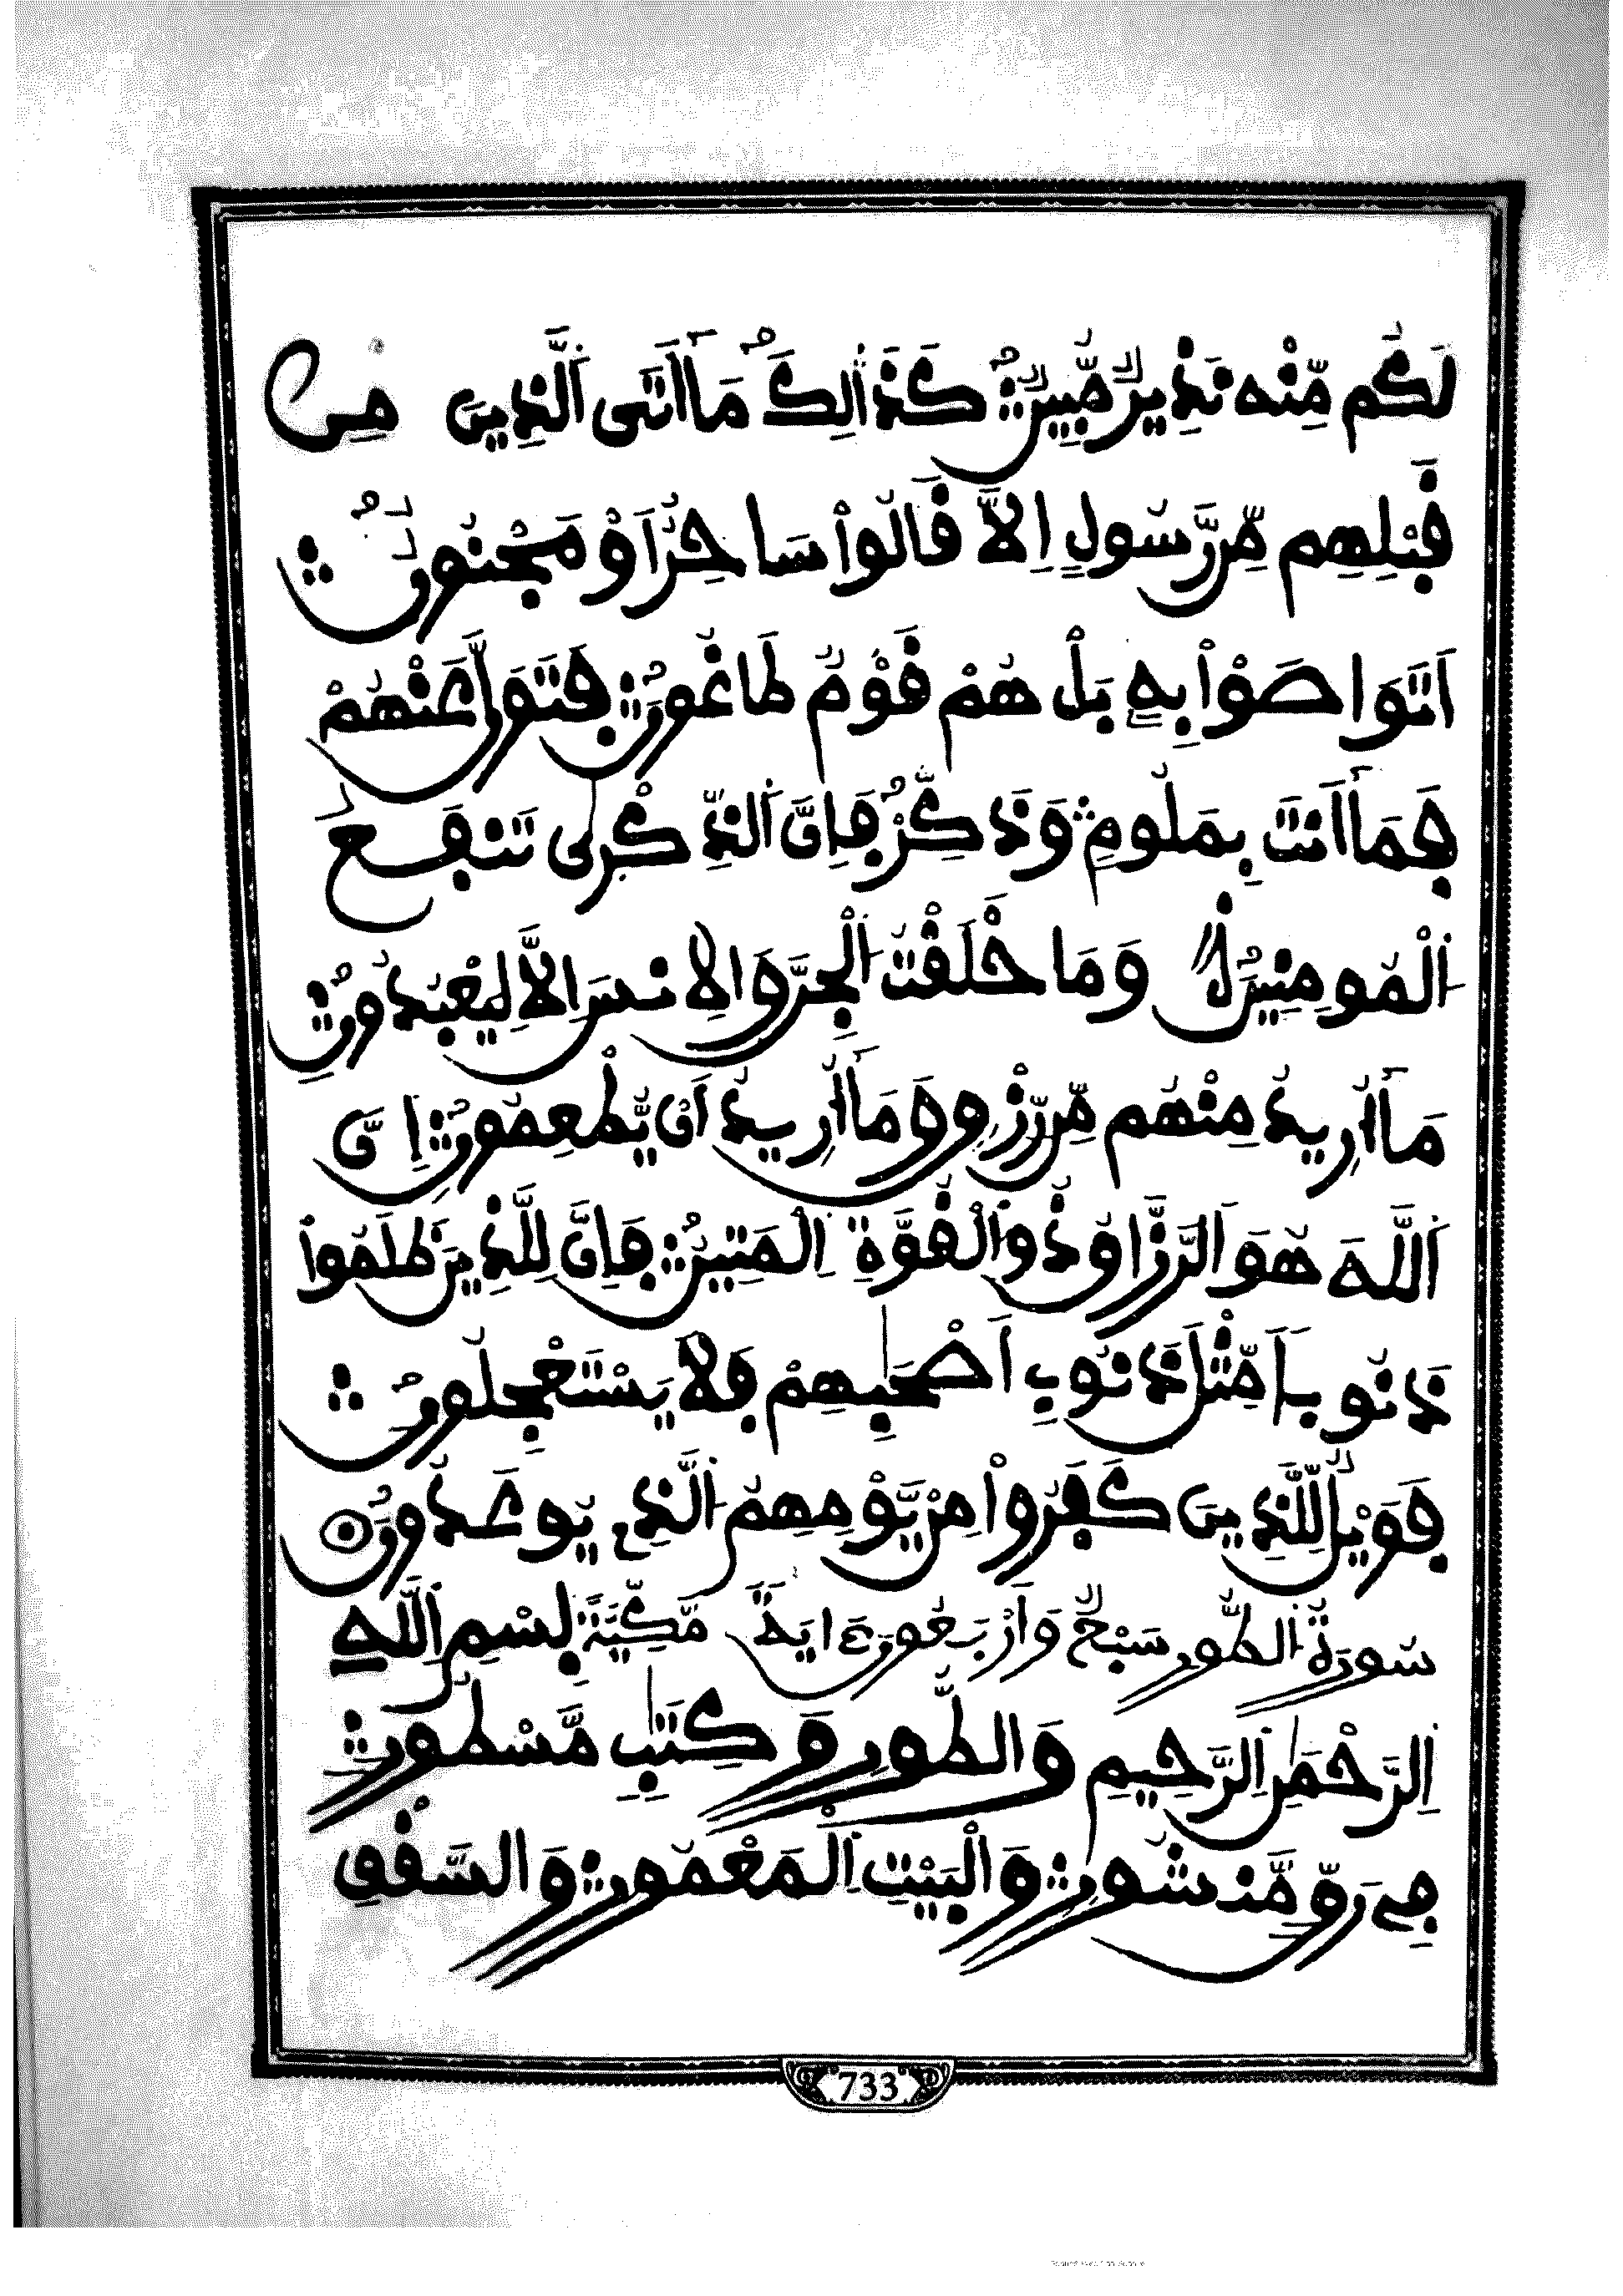 لَكُم مِّنْهُ نَذِيرٌ مُّبِينٌ كَذَٰلِكَ مَا أَتَى ٱلَّذِينَ مِن
قَبْلِهِم مِّن رَّسُولٍ إِلَّا قَالُواْ سَاحِرٌ أَوْ مَجْنُونٌ
أَتَوَاصَوْاْ بِهِ بَلْ هُمْ قَوْمٌ طَاغُونَ فَتَوَلَّ عَنْهُمْ
فَمَا أَنتَ بِمَلُومٍ وَذَكِّرْ فَإِنَّ ٱلذِّكْرَىٰ تَنفَعُ
ٱلْمُومِنِينَ وَمَا خَلَقْتُ ٱلْجِنَّ وَالْإِنسَ إِلَّا لِيَعْبُدُونِ
مَا أُرِيدُ مِنْهُم مِّن رِّزْقٍ وَمَا أُرِيدُ أَنْ يُّطْعِمُونِ إِنَّ
ٱللَّهَ هُوَ ٱلرَّزَّاقُ ذُو ٱلْقُوَّةِ ٱلْمَتِينُ فَإِنَّ لِلَّذِينَ ظَلَمُواْ
ذَنُوباً مِّثْلَ ذَنُوبِ أَصْحَٰبِهِمْ فَلَا يَسْتَعْجِلُونِ
فَوَيْلٌ لِّلَّذِينَ كَفَرُواْ مِنْ يَّوْمِهِمُ ٱلَّذِي يُوعَدُونَ
سُورَةُ ٱلطُّورِ سَبْعٌ وَأَرْبَعُونَ ءَايَةً مَّكِيَّةً بِسْمِ ٱللَّهِ
ٱلرَّحْمَٰنِ ٱلرَّحِيمِ وَالطُّورِ وَكِتَٰبٍ مَّسْطُورٍ
فِي رَقٍّ مَّنشُورٍ وَالْبَيْتِ ٱلْمَعْمُورِ وَالسَّقْفِ
733